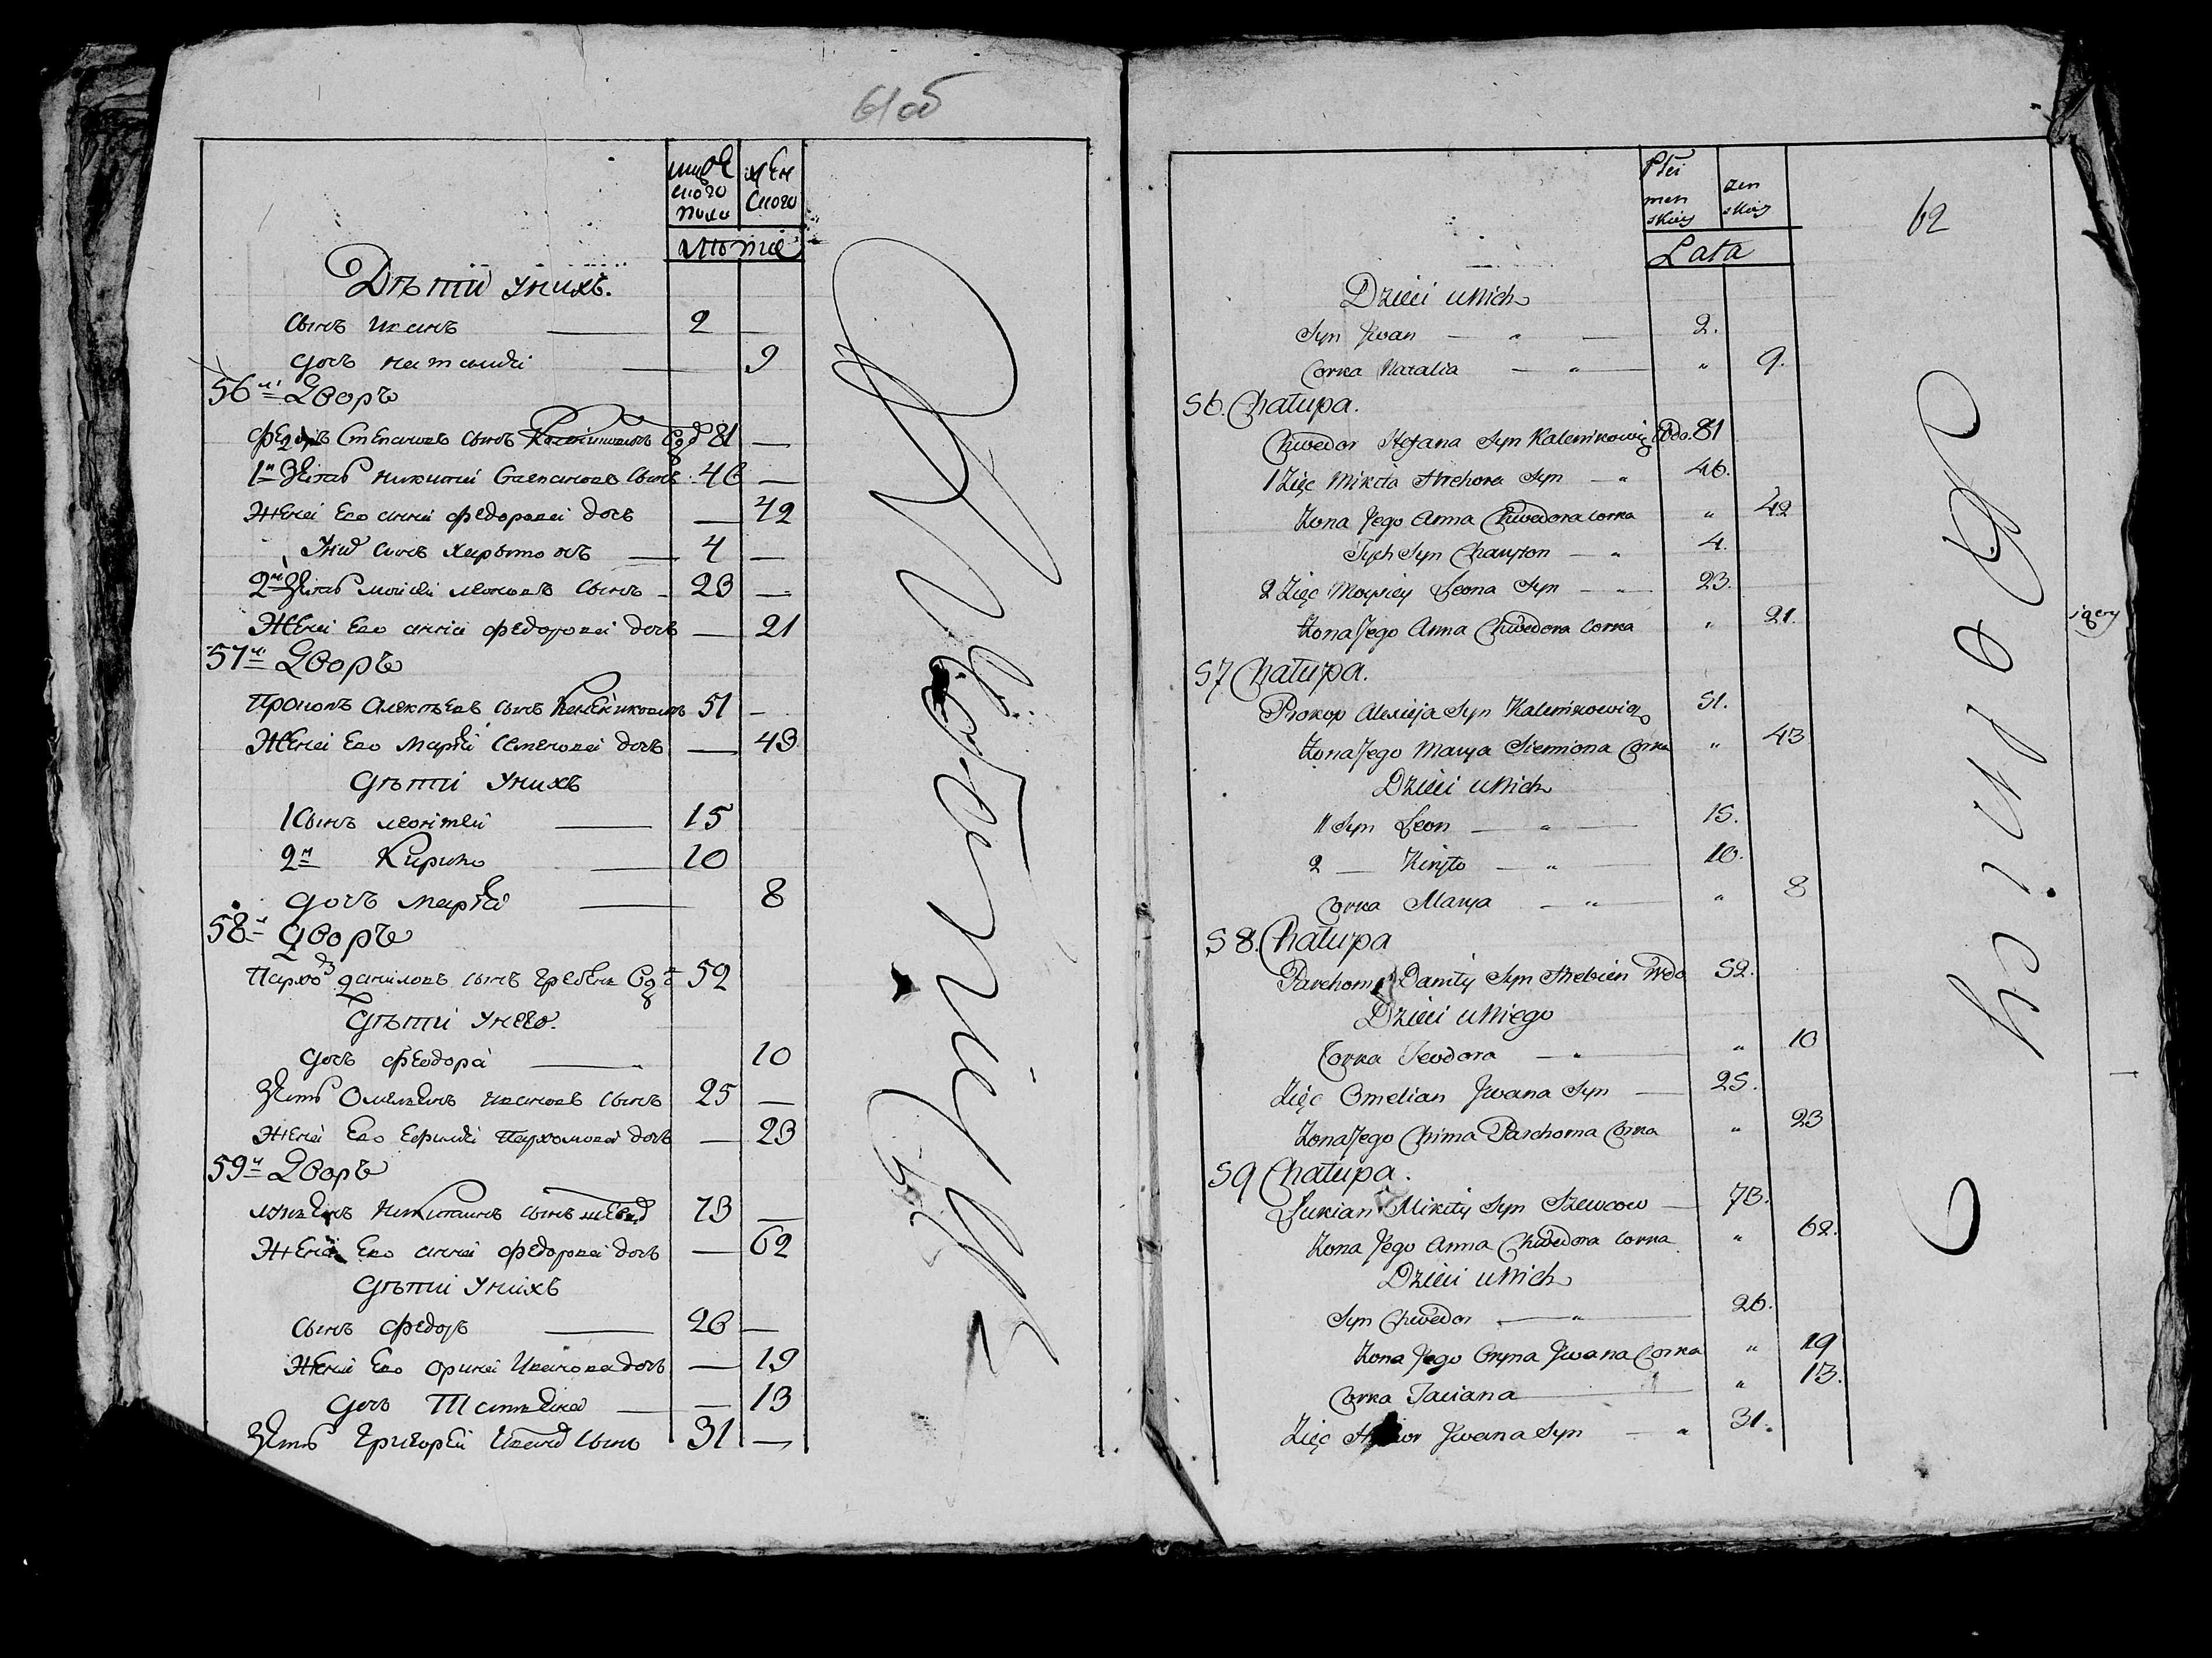 61об
мужескаго полу
женскаго
лѣта
Дѣти унихъ.
сынъ иванъ 2 —
дочъ наталія 9
56й Дворъ
федоръ Степановъ сынъ Каленіковичъ вд 81 —
1й Зять никита сынъ 46 —
жена его анна федорова дочъ — 42
Унихъ сынъ харытонъ 4 —
2й Зять моисей леоновъ сынъ 23 —
Жена Его анна федорова дочъ — 21
57й Дворъ
Прокопъ Алексѣевъ сынъ Каленіковичъ 51 —
Жена Его Марія Семенова дочъ — 43
Дѣти Унихъ
1 Сынъ леонтей 15
2й Кирило 10
Дочъ Марія 8
58й Дворъ
Пархомъ даниловъ сынъ гребень вд 52
Дѣти Унего.
Дочъ феодора 10
Зять Омельянъ ивановъ сынъ 25 —
Жена Его Ефимія Пархомова дочъ — 23
59й Дворъ
лукьянъ Никитинъ сынъ шевцов 73 —
Жена Его анна федорова дочъ — 62
Дѣти Унихъ
сынъ федоръ 26 —
Жена Его орина Иванова дочъ — 19
Дочъ Татьяна — 13
Зять григорей Иванов сынъ 31 —
62
Płci męskiey
żenskiey
Lata
Dzieci u Nich
Syn Jwan — " — 2.
Corka Natalia — " — " 9.
56. Chałupa.
Chwedor Stefana Syn Kalenikowicz Wdo. 81
1 Zięc Mikita Hrehora Syn — " 46.
Zona Jego Anna Chwedora Corka " 42
Tych Syn Charyton — " 4.
2 Zięc Moysiey Leona Syn — " 23.
Zona Jego Anna Chwedora Corka " 21.
57 Chałupa.
Prokop Alexieja Syn Kalenikowicz 51.
Zona Jego Marya Siemiona Corka " 43
Dzieci u Nich
1 Syn Leon — " — 15.
2 — Kiryło — " — 10.
Corka Marya — " — " 8
58. Chałupa
Parchom Daniły Syn Hrebien Wdo 52.
Dzieci u Niego
Corka Teodora — " — " 10
Zięc Omelian Jwana Syn — 25.
Zona Jego Chima Parchoma Corka " 23
59 Chałupa.
Łukian Mikity Syn Szewcow — 73.
Zona Jego Anna Chwedora Corka " 62.
Dzieci u Nich
Syn Chwedor — " — 26.
Zona Jego Oryna Jwana Corka " 19
Corka Taciana — " 13.
Zięc Jwana Syn — " 31.